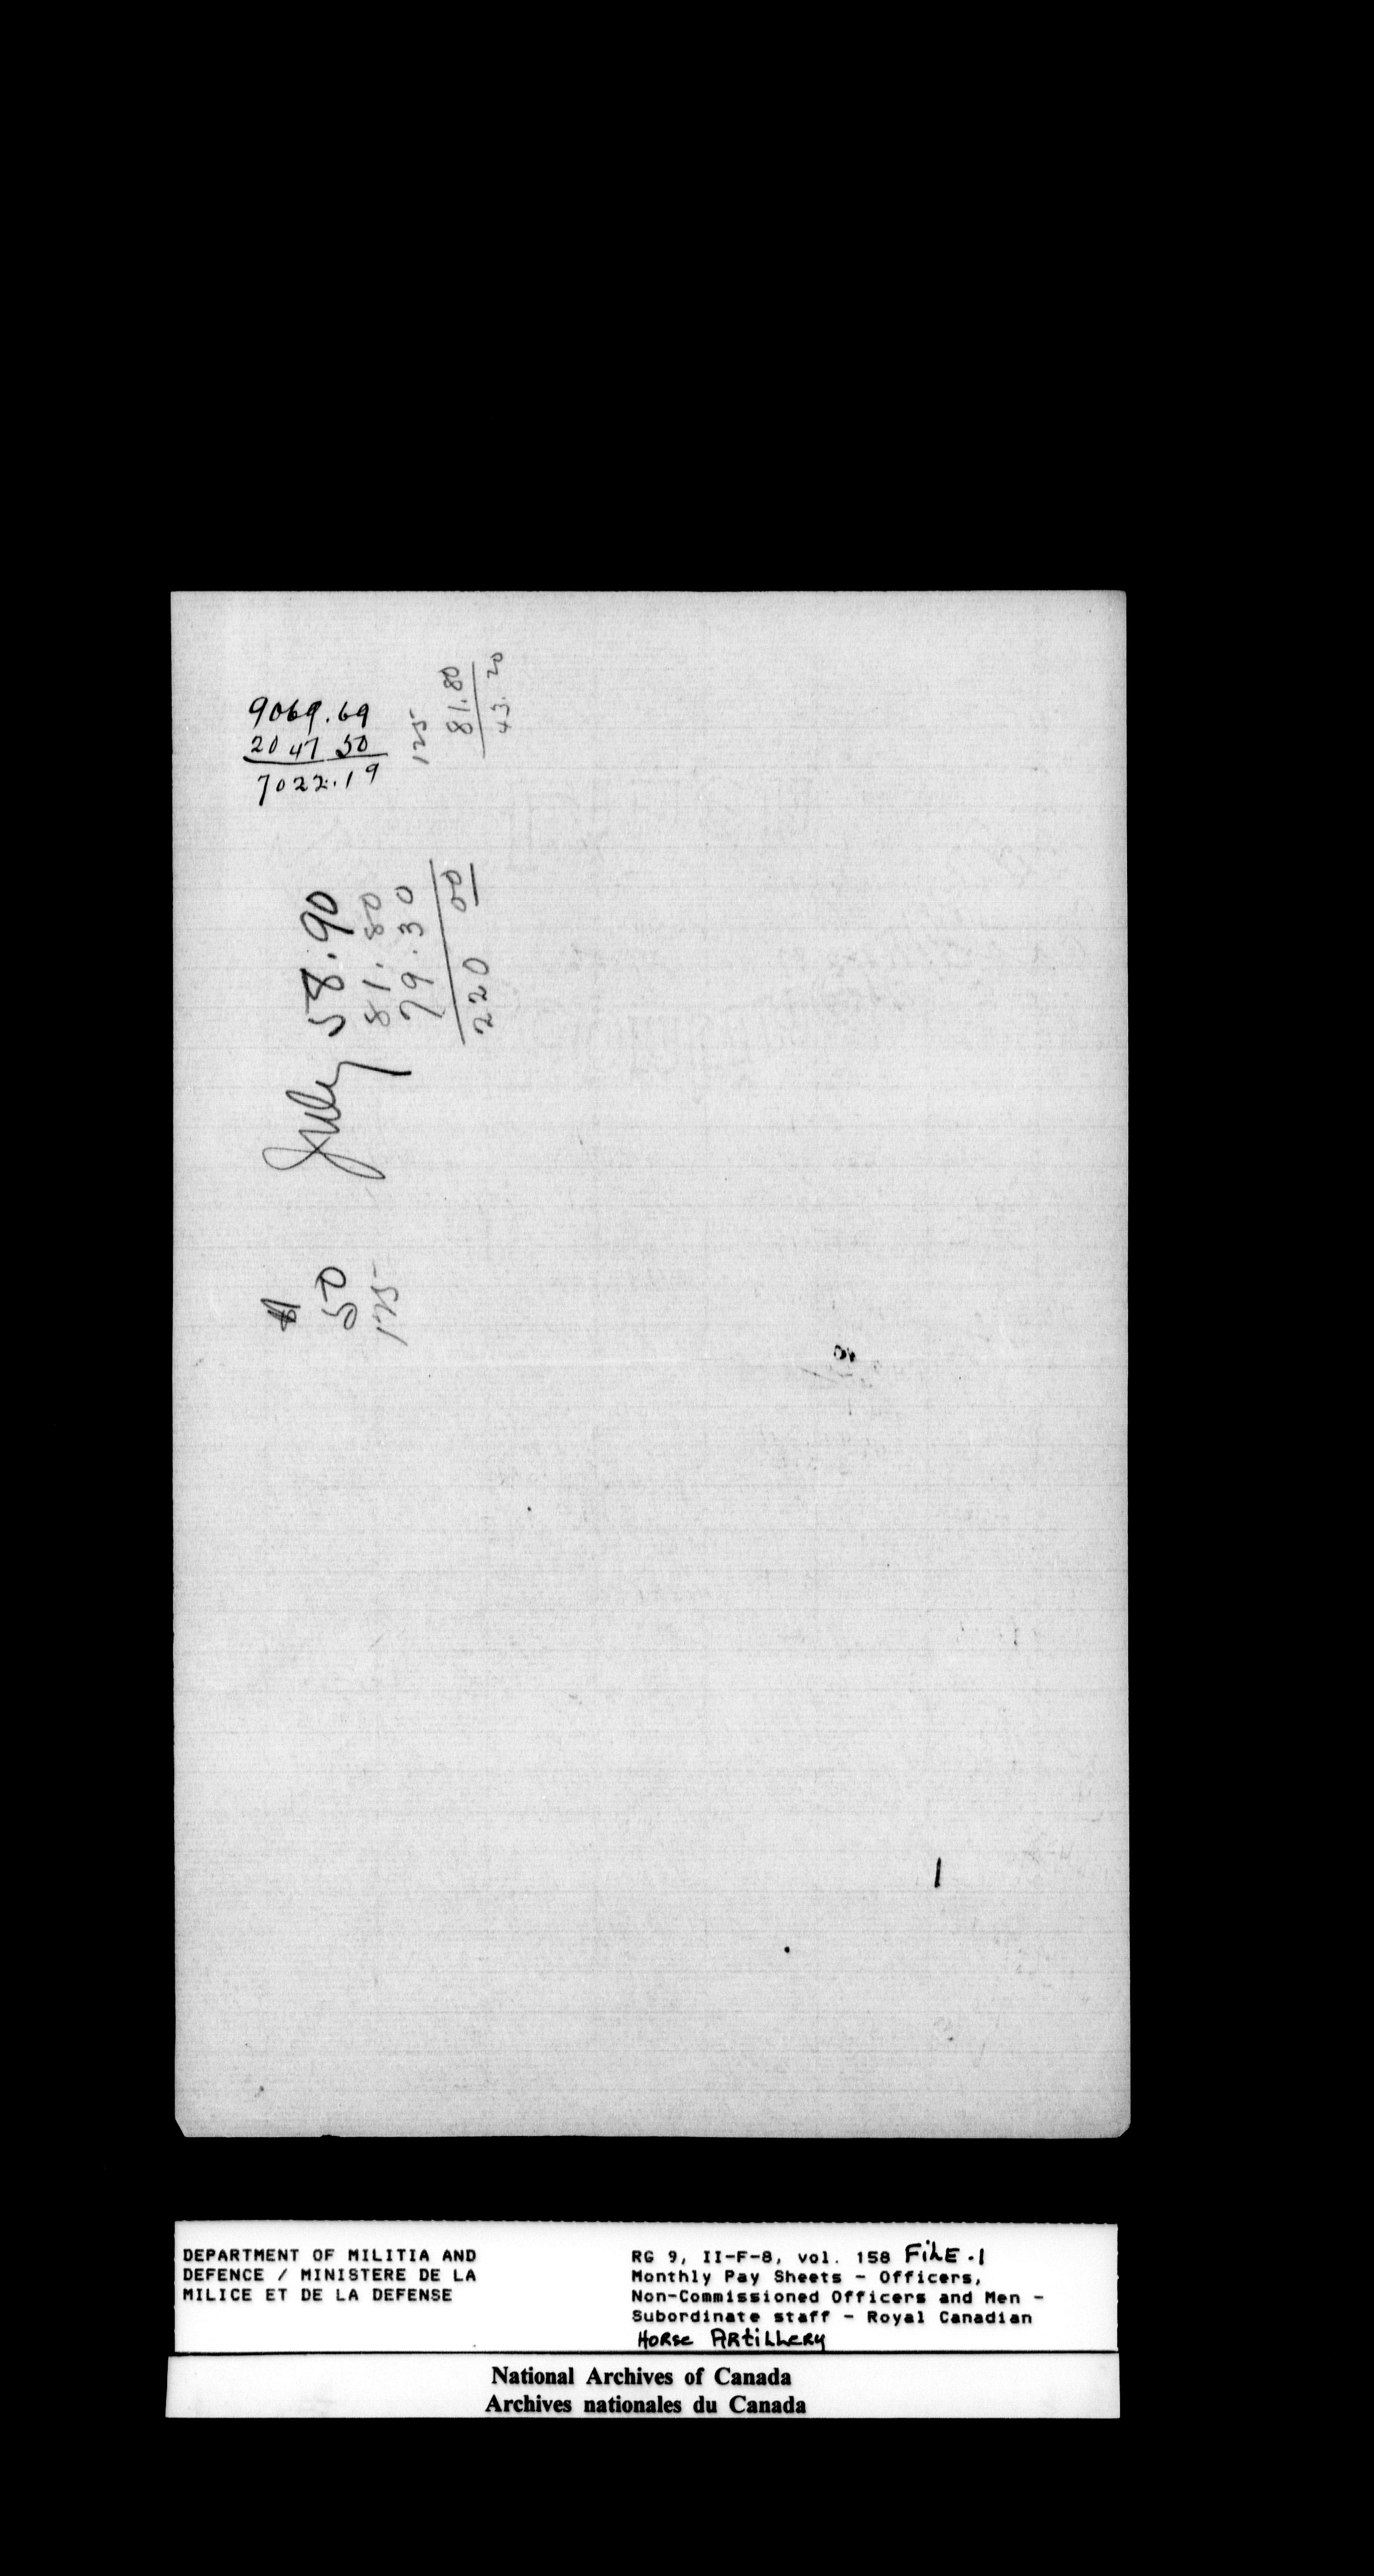 9069.69
2047 50
7022.19
125
81.80
43.20
July 58.90
81.80
79.30
220 00
50
175
1
DEPARTMENT OF MILITIA AND
DEFENCE / MINISTERE DE LA
MILICE ET DE LA DEFENSE
RG 9, II-F-8, vol. 158 FiLE.1
Monthly Pay Sheets - Officers,
Non-Commissioned Officers and Men -
Subordinate staff - Royal Canadian
HORSE ARtiLLERY
National Archives of Canada
Archives nationales du Canada